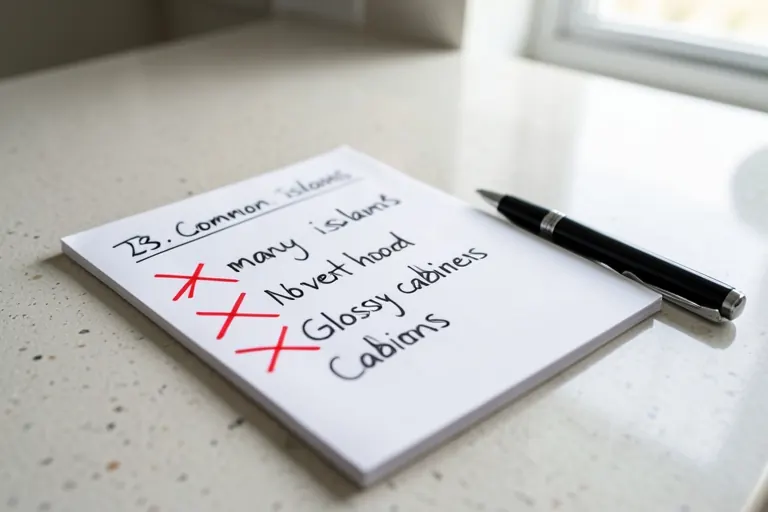 23. Common islams
many islams
No vert hood
Glossy cabineis
Cabions